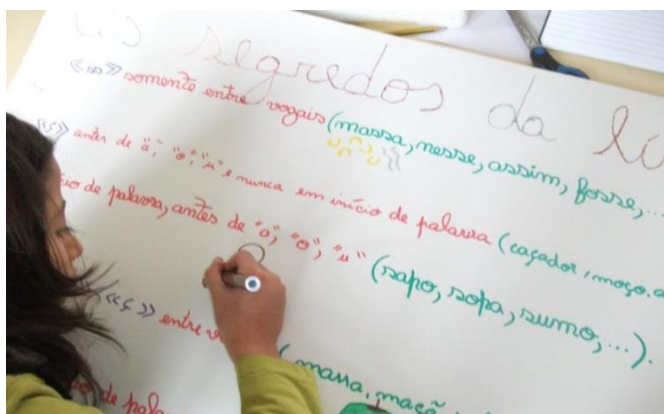 os segredos da lí
«ss» somente entre vogais (massa, nesse, assim, fosse,...
«ç» antes de "a", "o", "u" e nunca em início de palavra (caçador, moço, a
cio de palavra, antes de "a", "o", "u" (sapo, sopa, sumo,...).
«ç» entre (massa, maçã
de palav